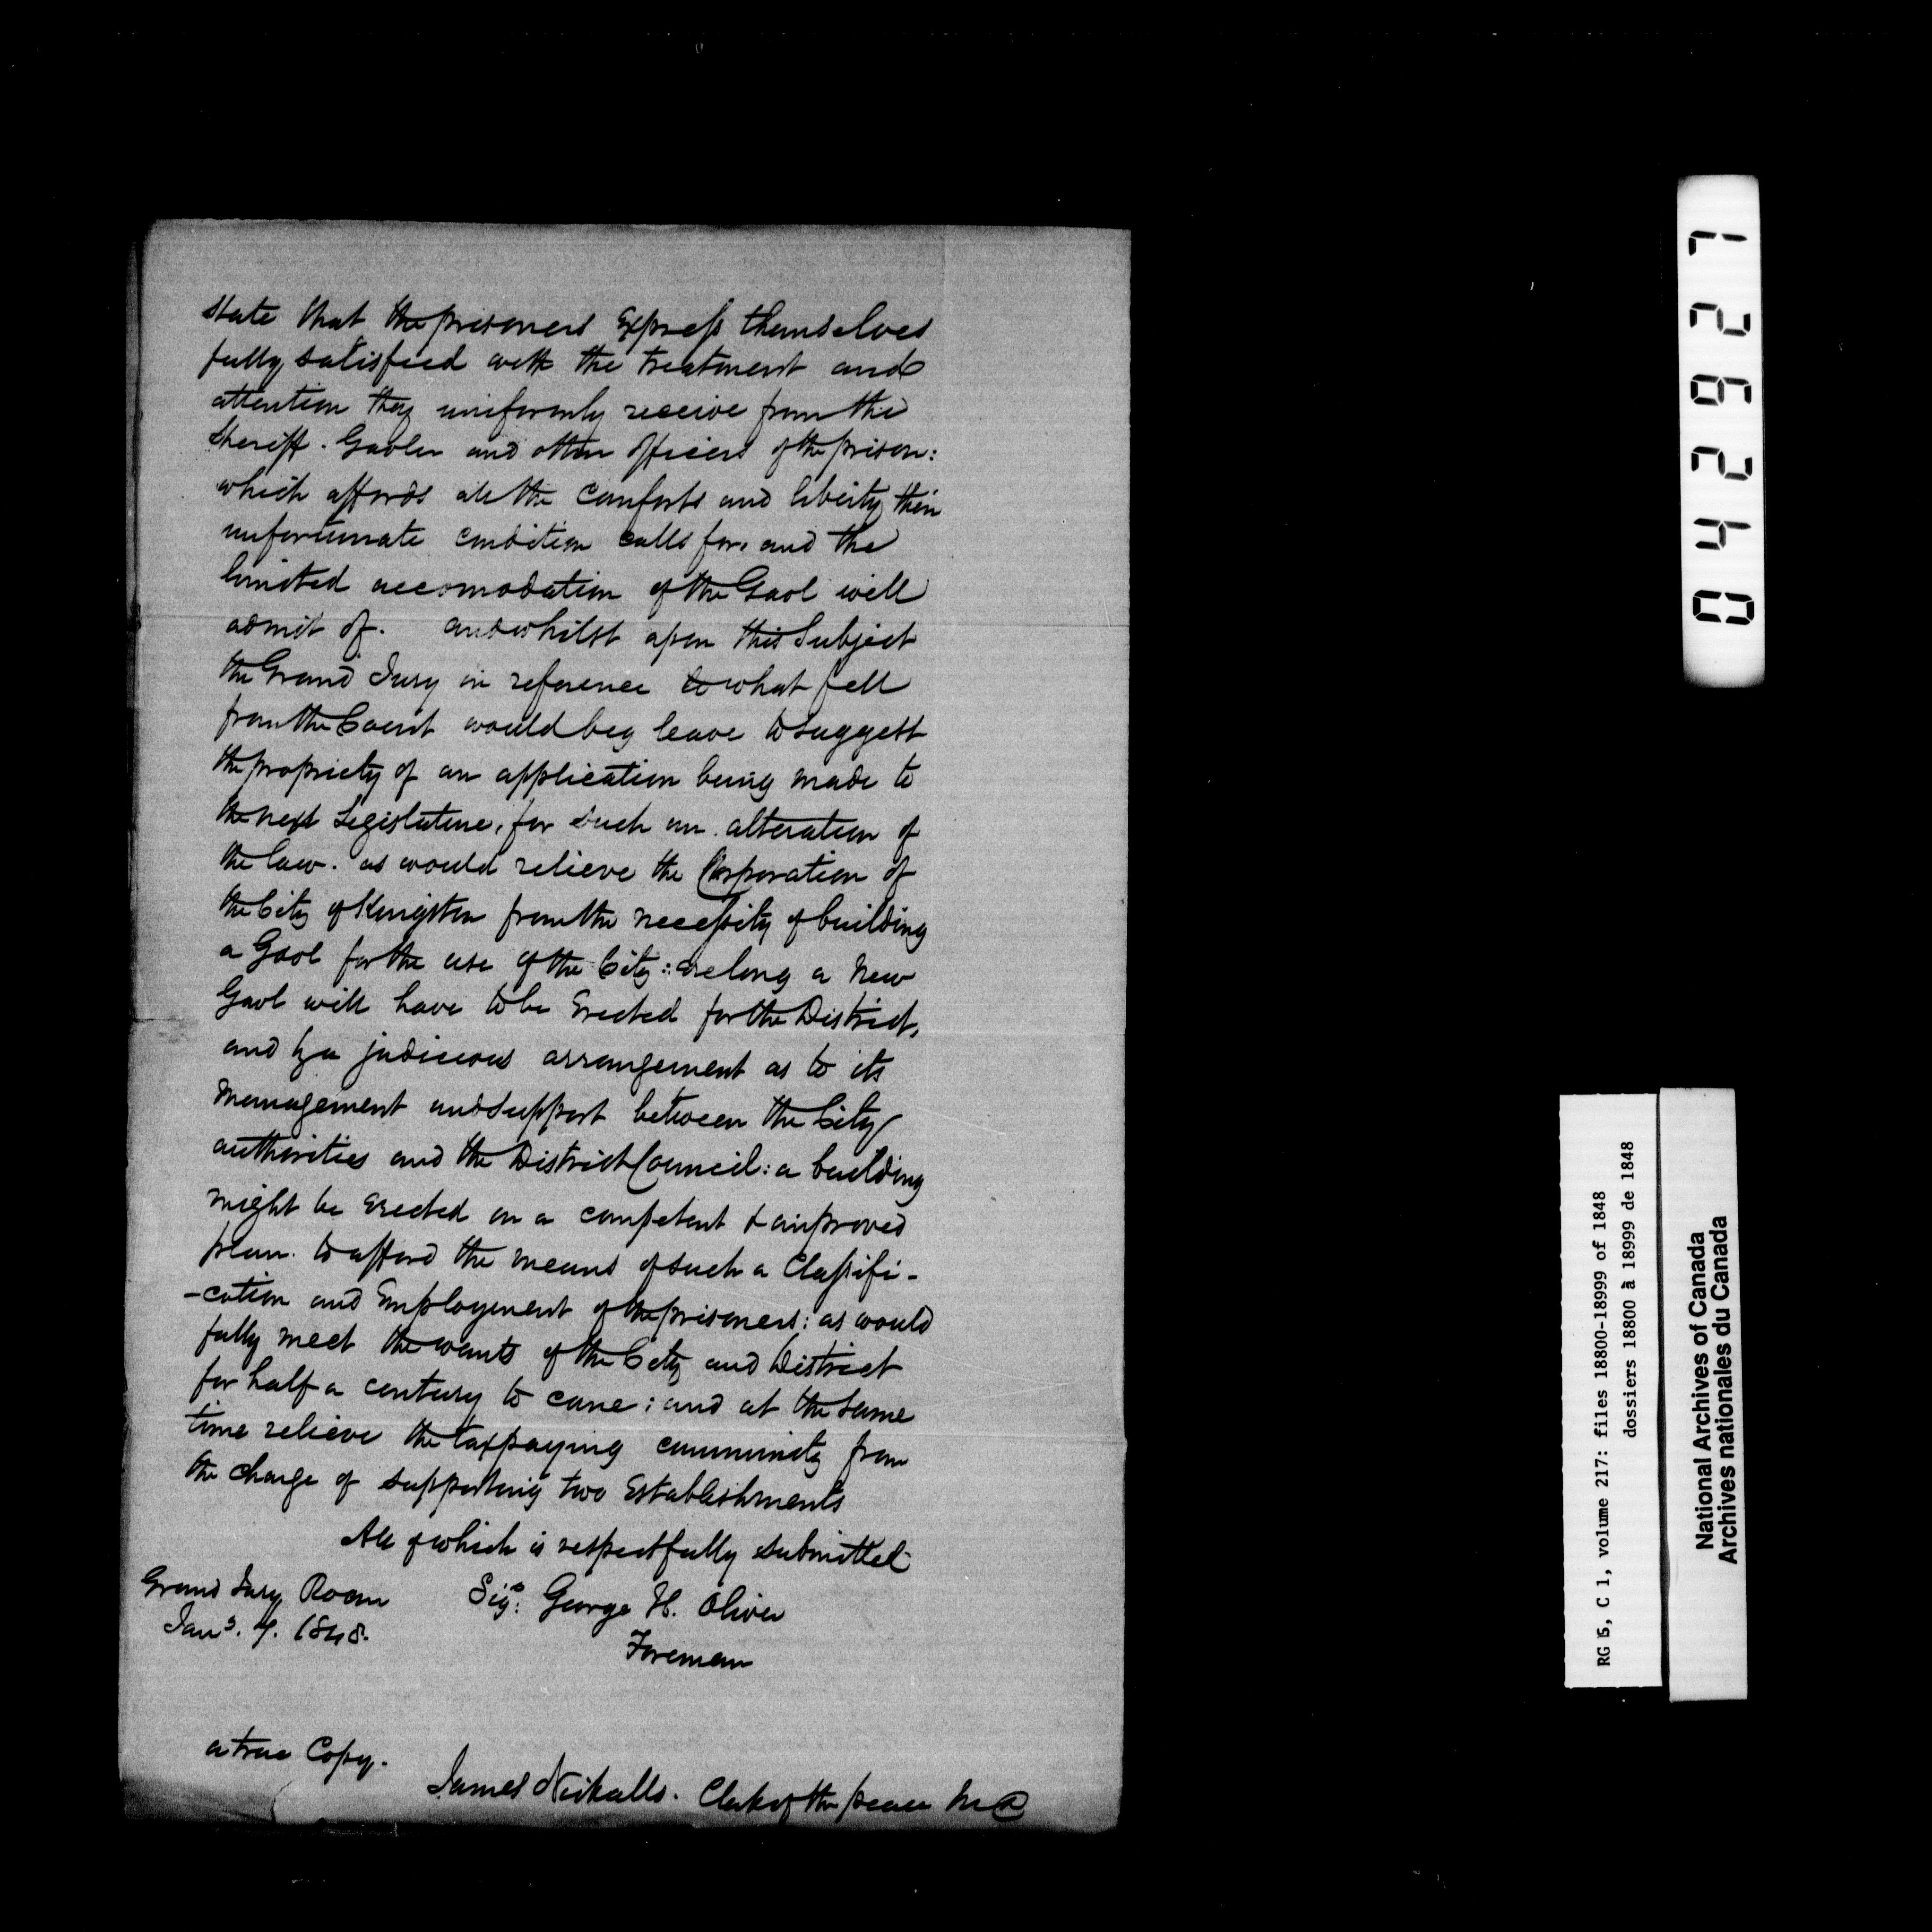 state that the prisoners Express themselves
fully satisfied with the treatment and
attention they uniformly receive from the
Sheriff. Gaoler and other officers of the prison:
which affords all the comforts and liberty their
unfortunate condition calls for, and the
limited accomodation of the Gaol will
admit of. and whilst upon this Subject
the Grand Jury in reference to what fell
from the Court would beg leave to suggest
the propriety of an application being made to
the next Legislature, for such an alteration of
the law. as would relieve the Corporation of
the City of Kingston from the necessity of building
a Gaol for the use of the City: as long a New
Gaol will have to be Erected for the District,
and by a judicious arrangement as to its
Management and support between the City
authorities and the District Council: a building
might be Erected on a competent & improved
plan. to afford the means of such a Classifi-
-cation and Employment of the prisoners: as would
fully meet the wants of the City and District
for half a century to come; and at the same
time relieve the taxpaying community from
the charge of supporting two Establishments
All of which is respectfully submitted
Grand Jury Room Sigd: George H. Oliver
1848.
Foreman
a true Copy.
James Nickalls. Clerk of the peace M D
042927
RG 5, C 1, volume 217: files 18800-18999 of 1848
dossiers 18800 à 18999 de 1848
National Archives of Canada
Archives nationales du Canada